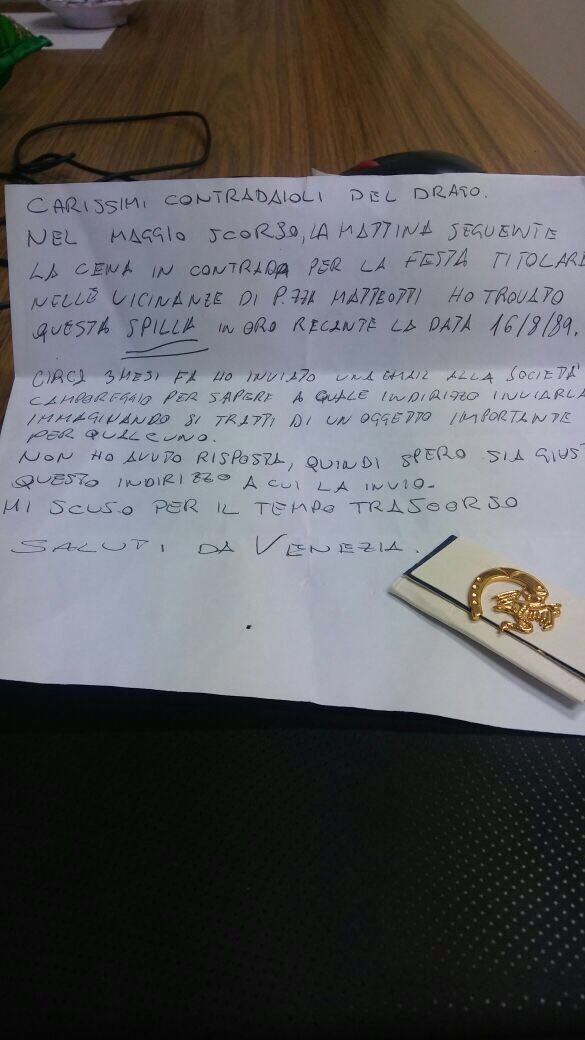 CARISSIMI CONTRADAIOLI DEL DRAGO.
NEL MAGGIO SCORSO, LA MATTINA SEGUENTE
LA CENA IN CONTRADA PER LA FESTA TITOLARE
NELLE VICINANZE DI P.ZZA MATTEOTTI HO TROVATO
QUESTA SPILLA IN ORO RECANTE LA DATA 16/8/89.
CIRCA 3 MESI FA HO INVIATO UNA EMAIL ALLA SOCIETÀ
CAMPOREGGIO PER SAPERE A QUALE INDIRIZZO INVIARLA
IMMAGINANDO SI TRATTI DI UN OGGETTO IMPORTANTE
PER QUALCUNO.
NON HO AVUTO RISPOSTA, QUINDI SPERO SIA GIUST
QUESTO INDIRIZZO A CUI LA INVIO.
MI SCUSO PER IL TEMPO TRASCORSO
SALUTI DA VENEZIA.